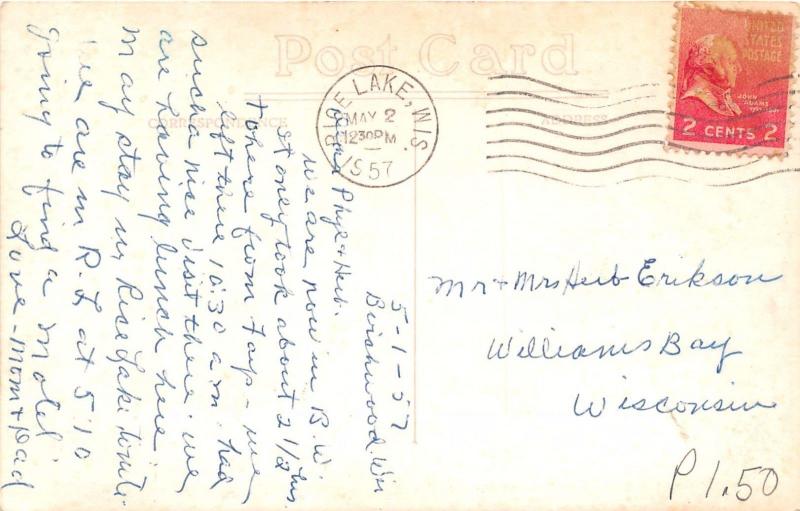 Post Card
CORRESPONDENCE
ADDRESS
RICE LAKE, WIS.
MAY 2
1230PM
1957
UNITED
STATES
POSTAGE
JOHN
ADAMS
2 CENTS 2
5-1-57
Birchwood, Wis
Phyl & Herb.
we are now in B.W.
it only took about 2 1/2 hrs.
to here from Fays - we
left there 10:30 a.m. had
such a nice visit there. we
are having lunch here
may stay in Rice Lake tonite.
we are in R.L. at 5:10
going to find a Motel
Love - Mom & Dad
Mr & Mrs Herb Erikson
Williams Bay
Wisconsin
P 1.50